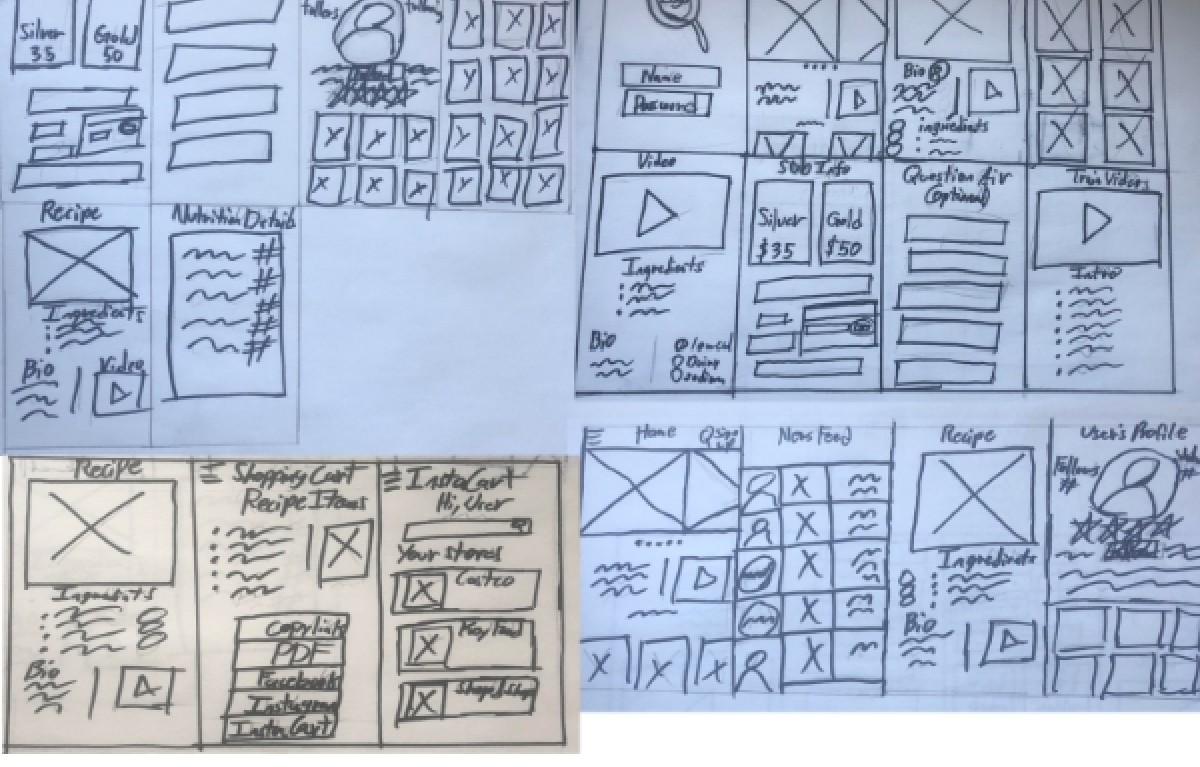 Silver
35
Gold
50
Recipe
Ingredients
Bio
Video
Nutrition Details
#
#
#
#
#
Name
Password
Bio
ingredients
Video
Ingredients
Bio
Sub Info
Silver
$35
Gold
$50
Question Air
(optional)
Train Videos
Intro
Recipe
Ingredients
Bio
Shopping Cart
Recipe Items
Copy link
PDF
Facebook
Instagram
InstaCart
InstaCart
Hi, User
Your stores
Costco
Key Food
Home
News Feed
Recipe
Ingredients
Bio
User's Profile
Follows
#